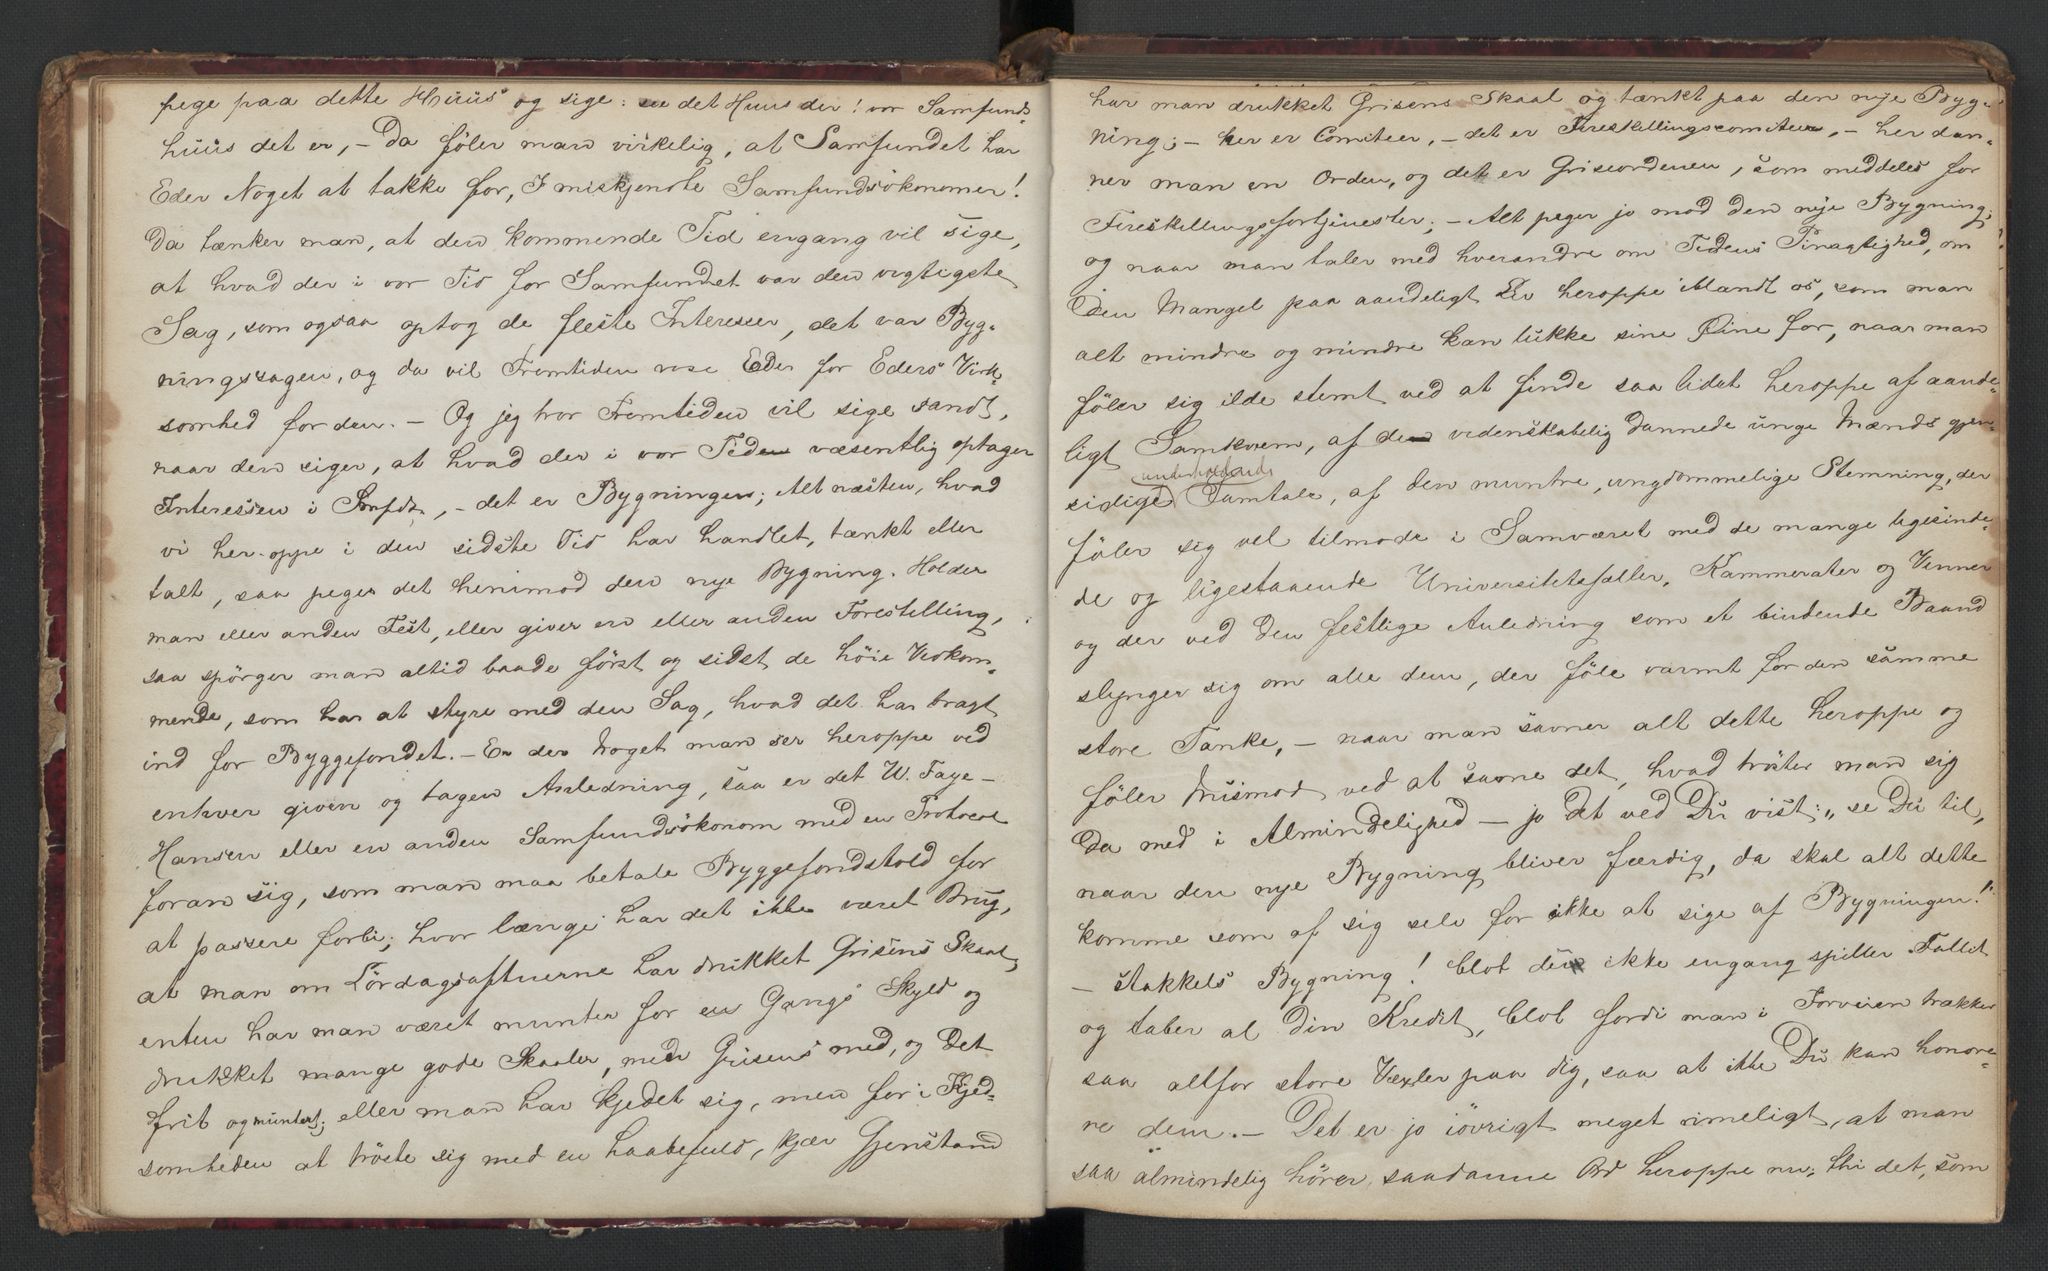 pege paa dette Huus og sige: se det Huus der! vor Samfunds-
huus det er, – Da føler man virkelig, at Samfundet har
Eder Noget at takke for, I miskjendte Samfundsøkonomer!
Da tænker man, at den kommende Tid engang vil sige,
at hvad der i vor Tid for Samfundet var den vigtigste
Sag, som ogsaa optog de fleste Interesser, det var Byg-
ningssagen, og da vil Fremtiden rose Eder for Eders Virk-
somhed for den. – Og jeg tror Fremtiden vil sige sandt,
naar den siger, at hvad der i vor Tid væsentlig optager
Interessen i Smfdt, – det er Bygningen; Alt næsten, hvad
vi her oppe i den sidste Tid har handlet, tænkt eller
talt, saa peger det henimod den nye Bygning. Holder
man eller anden Fest, eller giver en eller anden Forestilling,
saa spørger man altid baade først og sidst de høie Vedkom-
mende, som har at styre med den Sag, hvad det har bragt
ind for Byggefondet. – Er der Noget man ser heroppe ved
enhver given og tagen Anledning, saa er det W. Faye-
Hansen eller en anden Samfundsøkonom med en
foran sig, som man maa betale Byggefondstold for
at passere forbi; hvor længe har det ikke været Brug,
at man om Lørdagsaftnerne har drukket Grisens Skaal,
enten har man været munter for en Gangs Skyld og
drukket mange gode Skaaler, med Grisens med, og det
frit og muntert; eller man har kjedet sig, men for i Kjed-
somheden at trøste sig med en haabefuld, kjær Gjenstand
har man drukket Grisens Skaal og tænkt paa den nye Byg-
ning; – her er Comiteer, – det er Fireskillingscomiteer, – her dan-
ner man en Orden, og det er Griseordenen, som meddeles for
Fireskillingsfortjenester; – Alt peger jo mod den nye Bygning;
og naar man taler med hverandre om Tidens Pinagtighed, om
den Mangel paa aandeligt Liv heroppe iblandt os, som man
alt mindre og mindre kan lukke sine Øine for, naar man
føler sig ilde stemt ved at finde saa lidet heroppe af aande-
ligt Samkvem, af den videnskabelig dannede unge Mænds gjen-
underholdende
sidige Samtale, af den muntre, ungdommelige Stemning, der
føler sig vel tilmode i Samværet med de mange ligesinde-
de og ligestaaende Universitetsfæller, Kammerater og Venner
og der ved den festlige Anledning som et bindende Baand
slynger sig om alle dem, der føle varmt for den samme
store Tanke, – naar man savner alt dette heroppe og
føler Mismod ved at savne det, hvad trøster man sig
da med i Almindelighed – jo det ved Du vist: „se Du til,
naar den nye Bygning bliver færdig, da skal alt dette
komme som af sig selv for ikke at sige af Bygningen!“
– stakkels Bygning! blot du ikke engang spiller Fallit
og taber al din Kredit, blot fordi man i Forveien trækker
saa altfor store Vexler paa dig, saa at ikke Du kan honore-
re dem. – Det er jo iøvrigt meget rimeligt, at man
saa almindelig hører saadanne Ord heroppe nu; thi det, som